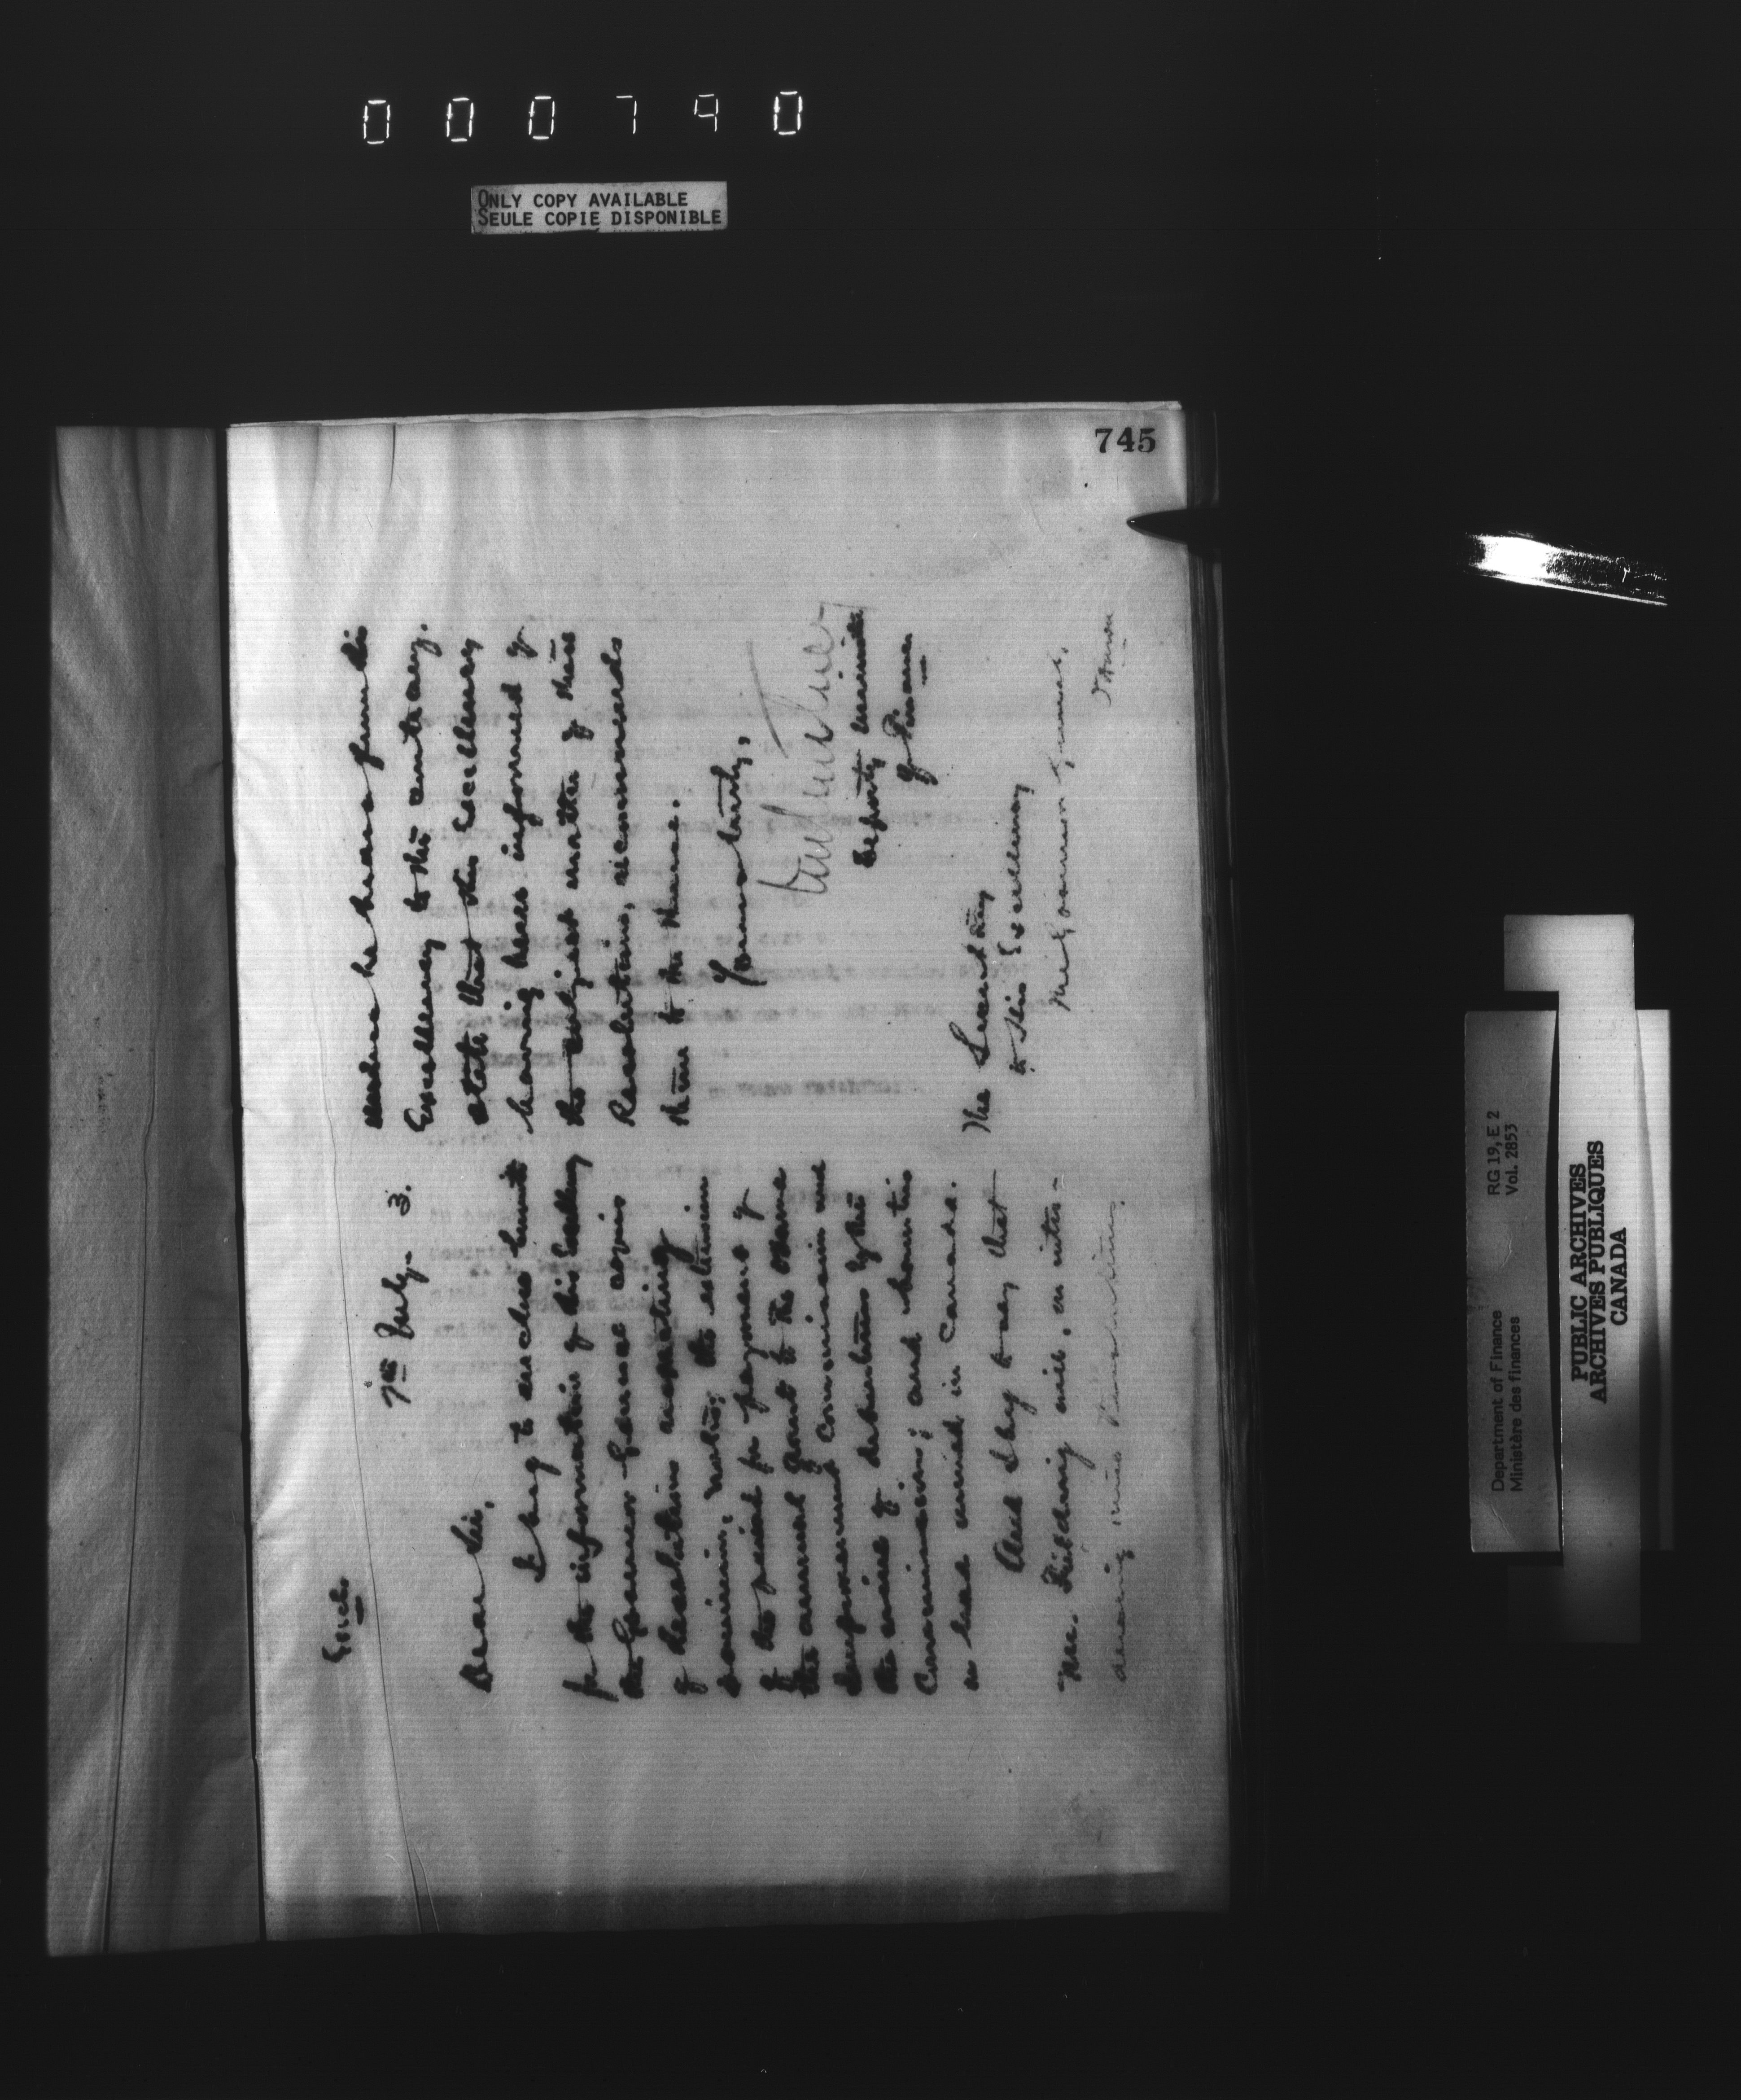 000790
ONLY COPY AVAILABLE
SEULE COPIE DISPONIBLE
745
Encls
7th July. 3.
Dear Sir,
I beg to enclose herewith
for the information of His Excellency
the Governor General copies
of Resolutions respecting
bounties, the extension
of the period for payment of
the annual grant to the Ottawa
Improvement Commission and
the issue of debentures by the
Commission; and bounties
on lead mined in Canada.
And I beg to say that
Mr. Fielding will, on intro-
ducing these Resolutions,
unless he hears from His
Excellency to the contrary,
state that His Excellency
having been informed of
the subject matter of these
Resolutions, recommends
them to the House.
Yours truly,
Deputy Minister
of Finance
The Secretary
to His Excellency
The Governor General,
Ottawa
Department of Finance
Ministère des finances
RG 19, E 2
Vol. 2853
PUBLIC ARCHIVES
ARCHIVES PUBLIQUES
CANADA